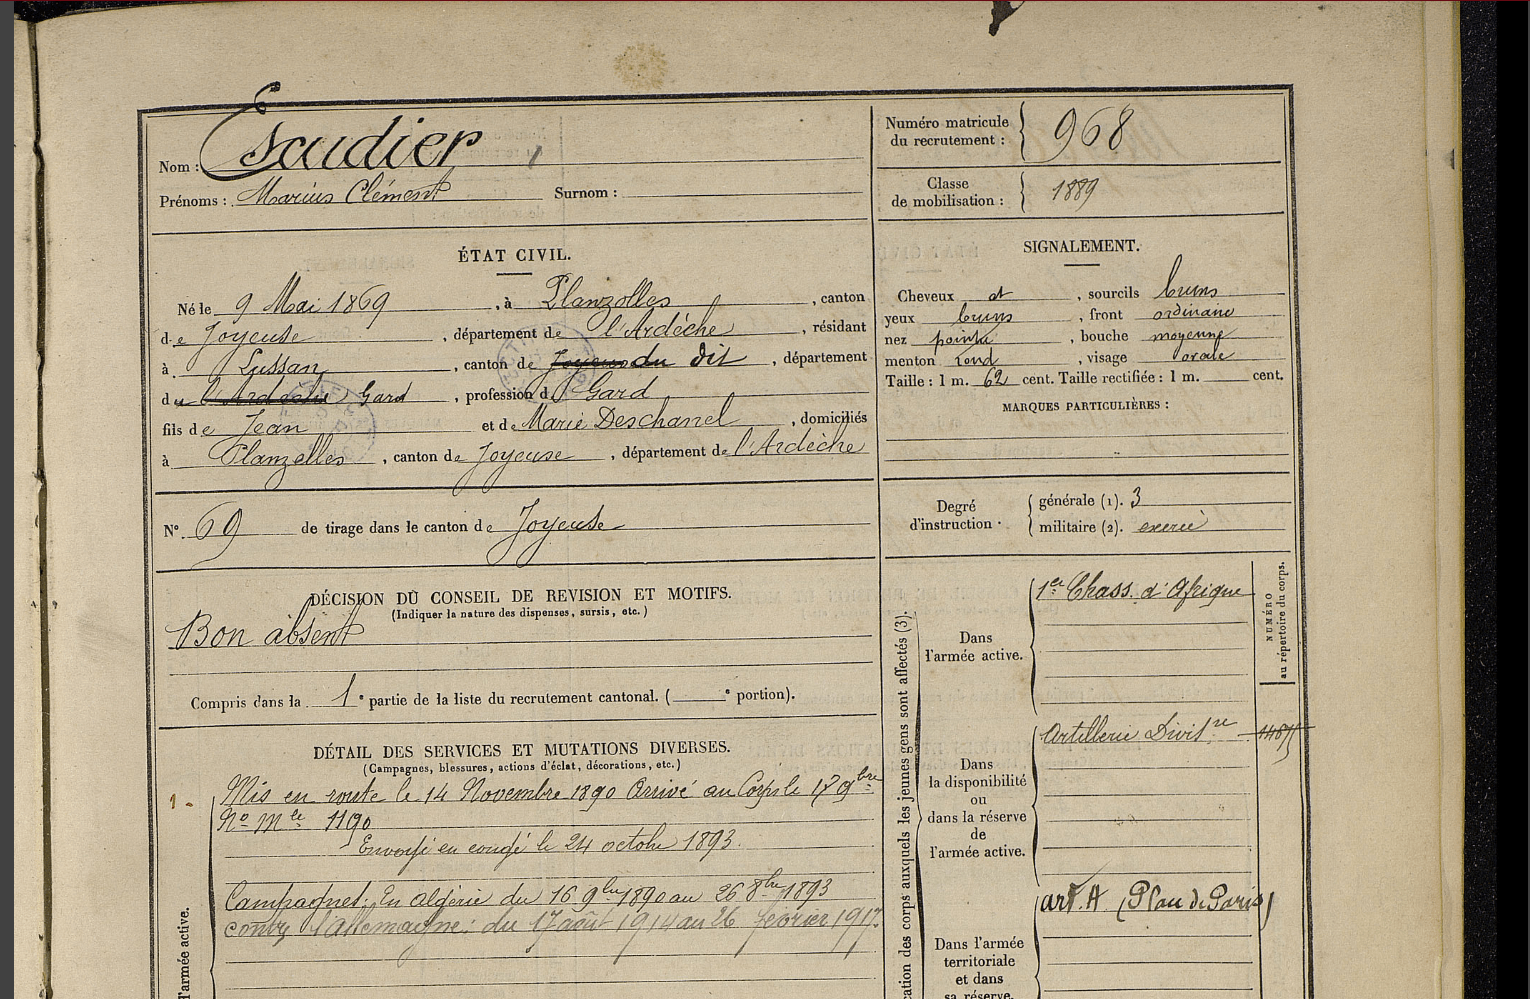 Nom : Escudier
Prénoms : Marius Clément Surnom :
Numéro matricule du recrutement : 968
Classe de mobilisation : 1889
ÉTAT CIVIL.
Né le 9 Mai 1869, à Planzolles, canton
de Joyeuse, département de l'Ardèche, résidant
à Lussan, canton de Joyeuse du dit, département
du l'Ardèche Gard, profession d Gard
fils de Jean et de Marie Deschanel, domiciliés
à Planzelles, canton de Joyeuse, département de l'Ardèche
N° 69 de tirage dans le canton de Joyeuse
SIGNALEMENT.
Cheveux et, sourcils bruns
yeux bruns, front ordinaire
nez pointu, bouche moyenne
menton rond, visage ovale
Taille : 1 m. 62 cent. Taille rectifiée : 1 m. cent.
MARQUES PARTICULIÈRES :
Degré d'instruction.
générale (1). 3
militaire (2). exercé
DÉCISION DU CONSEIL DE REVISION ET MOTIFS.
(Indiquer la nature des dispenses, sursis, etc.)
Bon absent
Compris dans la 1e partie de la liste du recrutement cantonal. ( e portion).
DÉTAIL DES SERVICES ET MUTATIONS DIVERSES.
(Campagnes, blessures, actions d'éclat, décorations, etc.)
1.
Mis en route le 14 Novembre 1890 Arrivé au Corps le 17 9bre
No Mle 1190
Envoyé en congé le 24 octobre 1893.
Campagnes: En algérie du 16 9bre 1890 au 26 8bre 1893
contre l'allemagne: du 17 août 1914 au 26 février 1917.
l'armée active.
cation des corps auxquels les jeunes gens sont affectés (3).
Dans
l'armée active.
1er Chass. d'Afrique
NUMÉRO
au répertoire du corps.
Dans
la disponibilité
ou
dans la réserve
de
l'armée active.
Artillerie Divisre
Dans l'armée
territoriale
et dans
sa réserve.
art. A (Place de Paris)